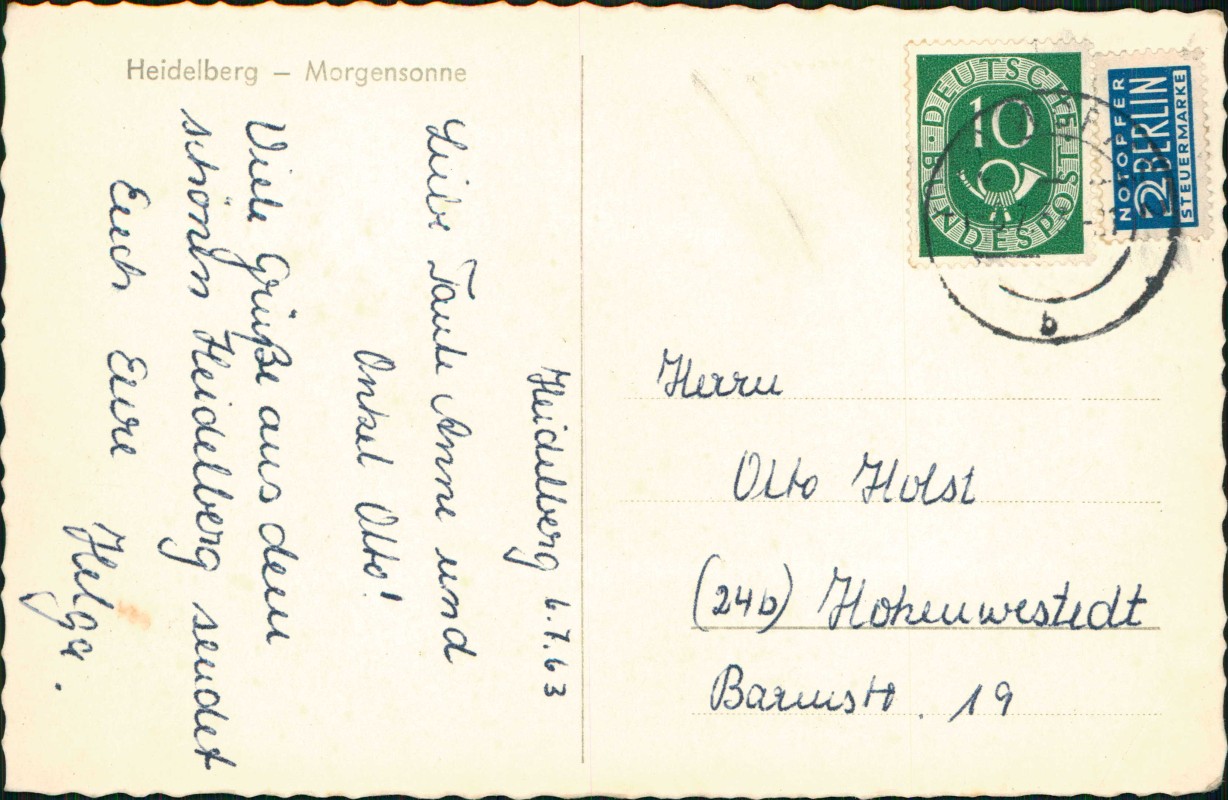 Heidelberg – Morgensonne
Heidelberg 6.7.63
Liebe Tante Anne und
Onkel Otto!
Viele Grüße aus dem
schönen Heidelberg sendet
Euch Eure
Helga.
DEUTSCHE BUNDESPOST
10
NOTOPFER
2 BERLIN
STEUERMARKE
b
Herrn
Otto Holst
(24b) Hohenwestedt
19